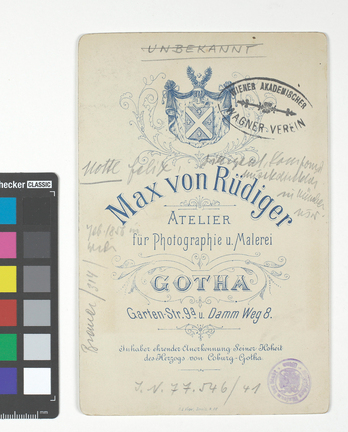 UNBEKANNT
WIENER AKADEMISCHER
WAGNER-VEREIN
Mottl Felix
Dirigent,
in München
Max von Rüdiger
ATELIER
für Photographie u. Malerei
GOTHA
Garten-Str. 9a u. Damm Weg 8.
Inhaber ehrender Anerkennung Seiner Hoheit
des Herzogs von Coburg-Gotha.
I.N. 77.546/41
checker CLASSIC
mm